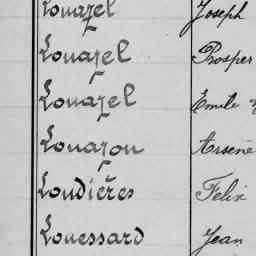 Louazel Joseph
Louazel Prosper
Louazel Emile
Louazon Arsène
Loudières Felix
Louessard Jean